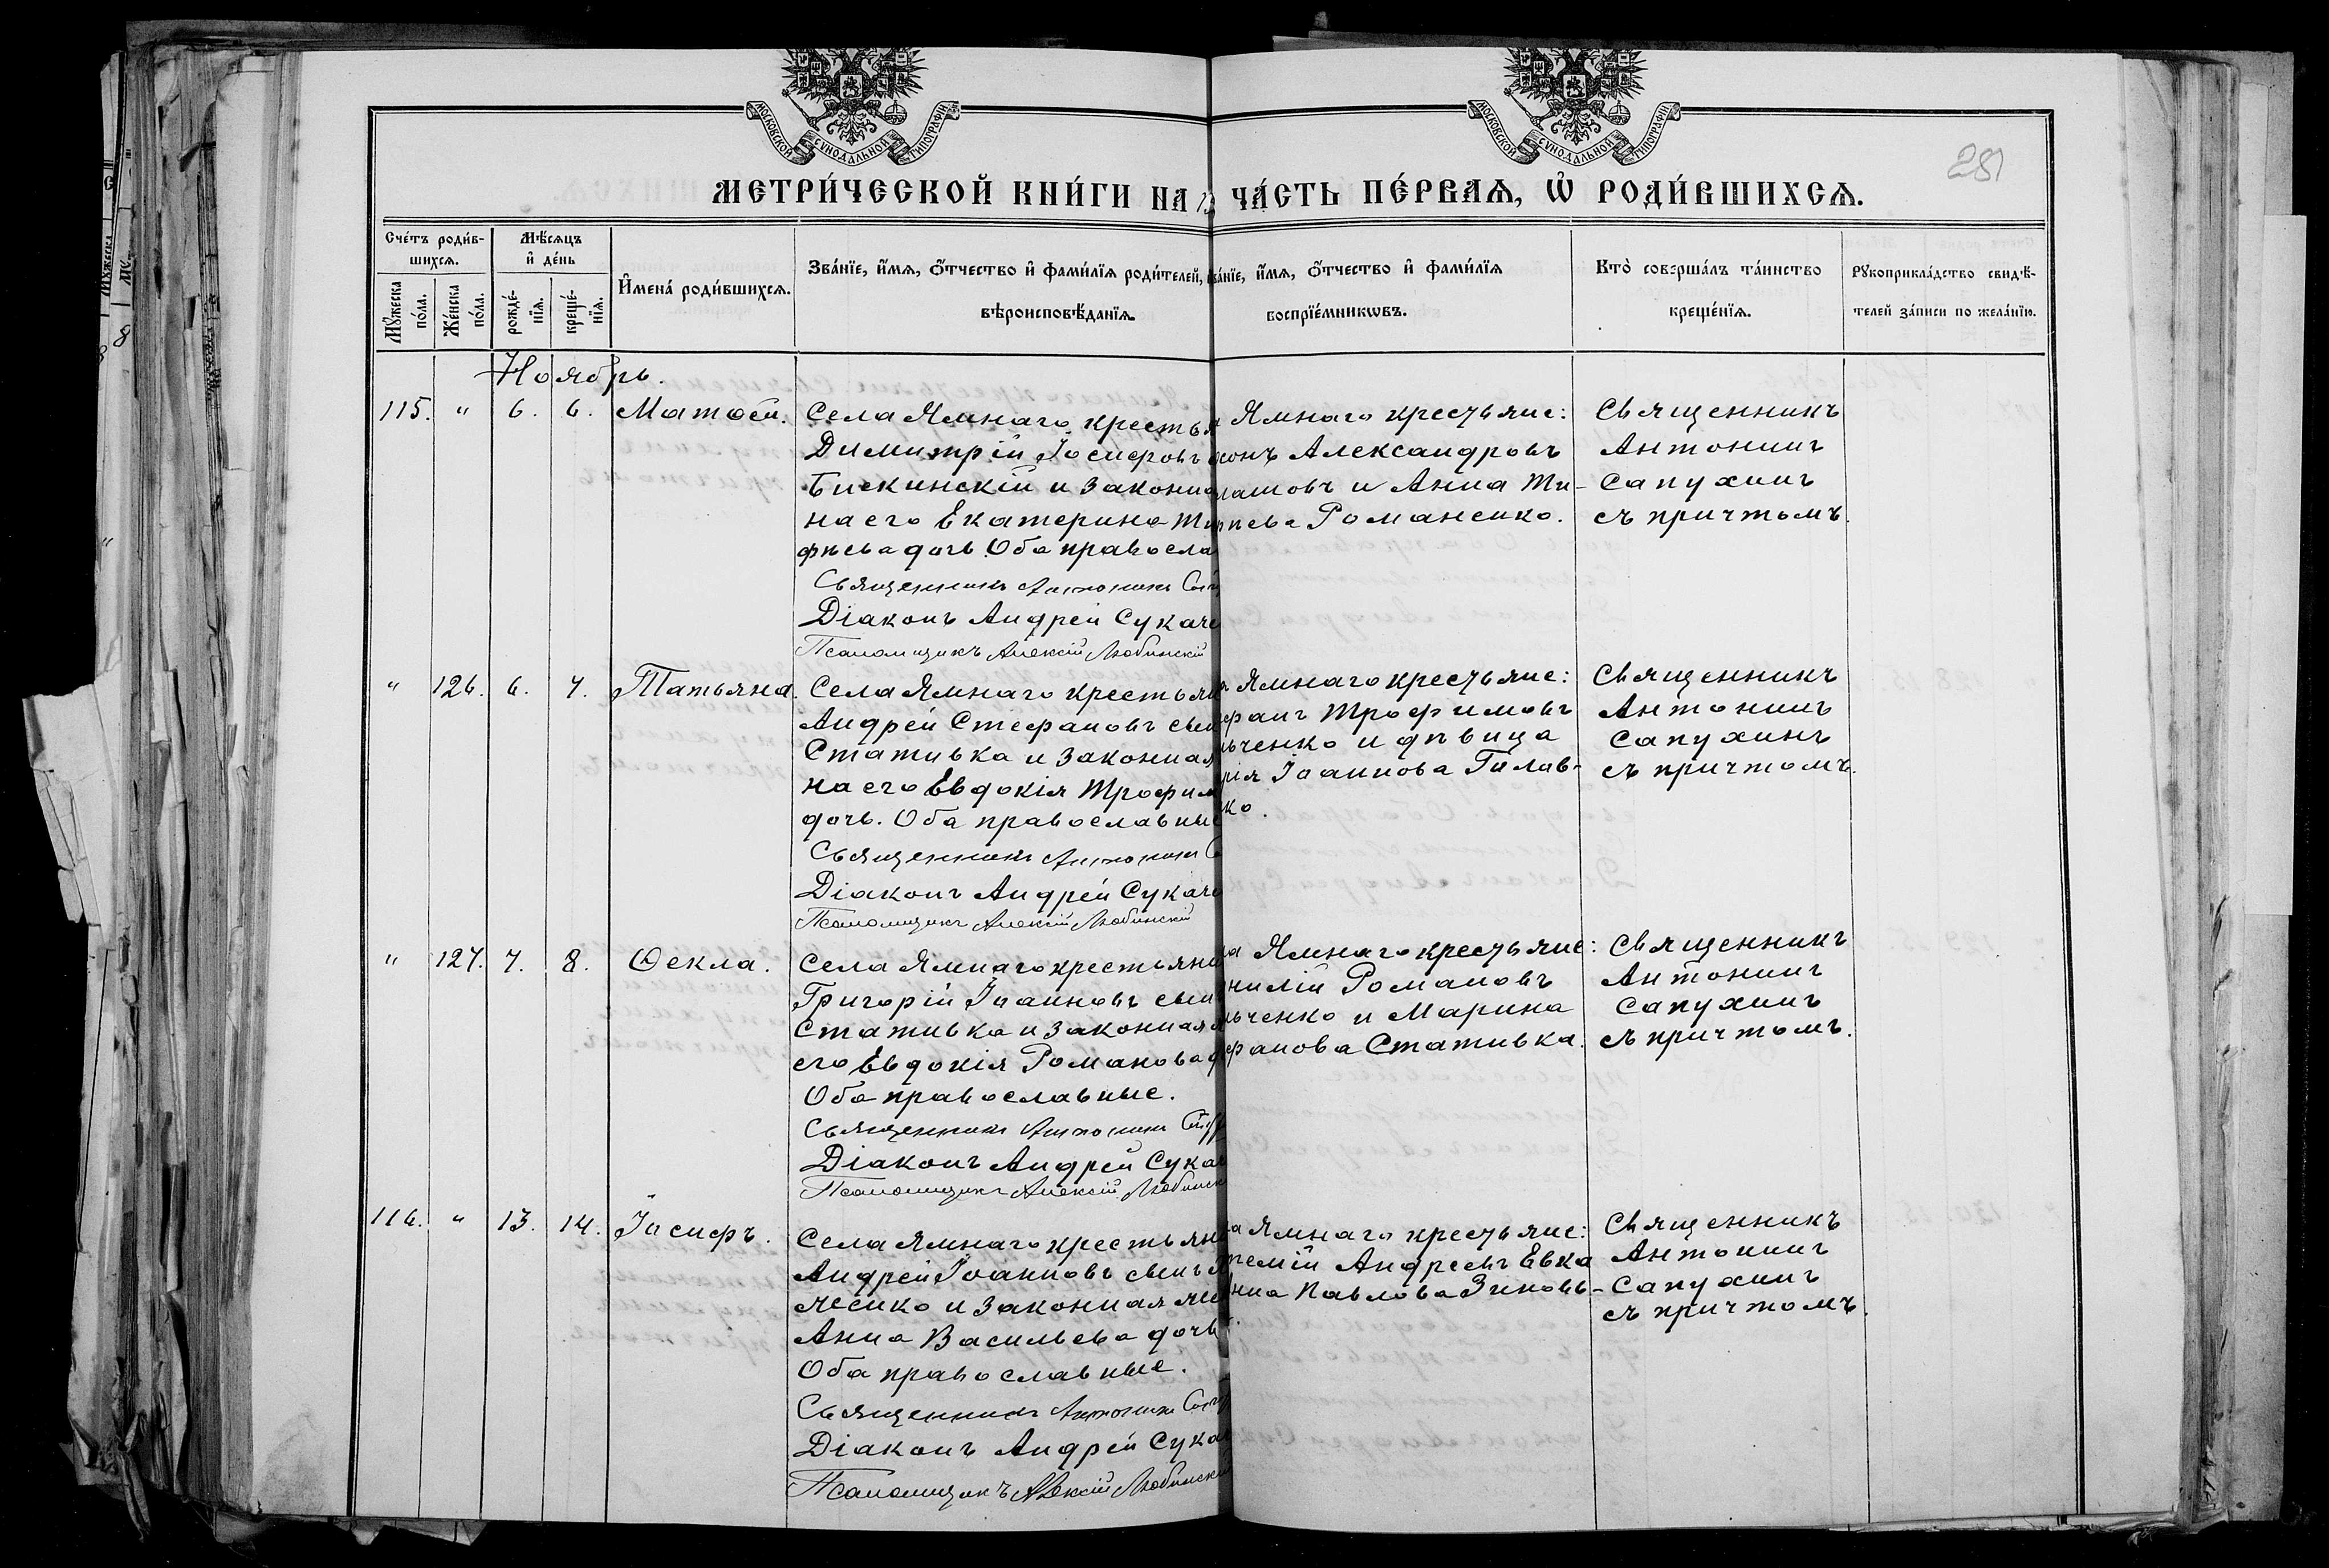 МОСКОВСКОЙ СѴНОДАЛЬНОЙ ТИПОГРАФІИ
МОСКОВСКОЙ СѴНОДАЛЬНОЙ ТИПОГРАФІИ
281
МЕТРИ́ЧЕСКОЙ КНИ́ГИ НА
ЧА́СТЬ ПЕ́РВАѦ, Ѡ҆ РОДИ́ВШИХСѦ.
Сче́тъ роди́в-
шихсѧ.
Мѣ́сѧцъ
и҆ де́нь
Мꙋ́жеска
по́ла.
Же́нска
по́ла.
рожде́-
нїѧ.
креще́-
нїѧ.
И҆мена̀ роди́вшихсѧ.
Зва́нїе, и҆́мѧ, ѻ҆́тчество и҆ фами́лїѧ роди́телей,
вѣроисповѣ́данїѧ.
ва́нїе, и҆́мѧ, ѻ҆́тчество и҆ фами́лїѧ
воспрїе́мникѡвъ.
Кто̀ соверша́лъ та́инство
креще́нїѧ.
Рꙋкоприкла́дство свидѣ́-
телей за́писи по жела́нїю.
Ноябрь.
115. " 6. 6. Матѳей.
Села Ямнаго крестья
Димитрій Іосифовъ
Бискинскій и законна
на его Екатерина Ти
фѣева дочь. Оба правосла
Священникъ Антонинъ
Діаконъ Андрей Сукаче
Псаломщикъ Алексій Любинскій
Ямнаго крестьяне:
Александровъ
и Анна Ти-
Романенко.
Священникъ
Антонинъ
Сапухинъ
съ причтомъ.
" 126. 6. 7. Татьяна.
Села Ямнаго крестьяни
Андрей Стефановъ сын
Стативка и законная
на его Евдокія Трофим
дочь. Оба православные
Священникъ Антонинъ
Діаконъ Андрей Сукаче
Псаломщикъ Алексій Любинскій
Ямнаго крестьяне:
фанъ Трофимовъ
ьченко и дѣвица
рія Іоаннова Гилав-
ко.
Священникъ
Антонинъ
Сапухинъ
съ причтомъ.
" 127. 7. 8. Ѳекла.
Села Ямнаго крестьяни
Григорій Іоанновъ сын
Стативка и законная
его Евдокія Романова
Оба православные.
Священникъ Антонинъ
Діаконъ Андрей Сукач
Псаломщикъ Алексій Любинск
а Ямнаго крестьяне:
нилій Романовъ
ьченко и Марина
фанова Стативка.
Священникъ
Антонинъ
Сапухинъ
съ причтомъ.
116. " 13. 14. Іосифъ.
Села Ямнаго крестьяни
Андрей Іоанновъ сынъ
ленко и законная же
Анна Васильева дочь
Оба православные.
Священникъ Антонинъ
Діаконъ Андрей Сукач
Псаломщикъ Алексій Любинскій
а Ямнаго крестьяне:
темій Андреевъ Евка
нна Павлова Зиновь-
Священникъ
Антонинъ
Сапухинъ
съ причтомъ.